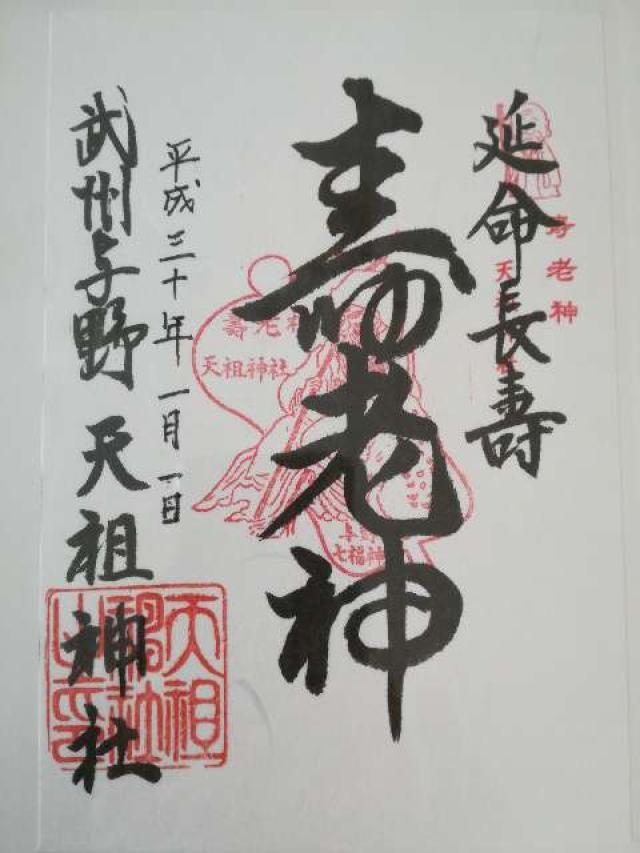 延命長寿
寿老神
壽老神
平成三十年一月一日
武州与野天祖神社
寿老神
天祖神社
壽老神
天祖神社
与野
七福神
天祖
神社
之印